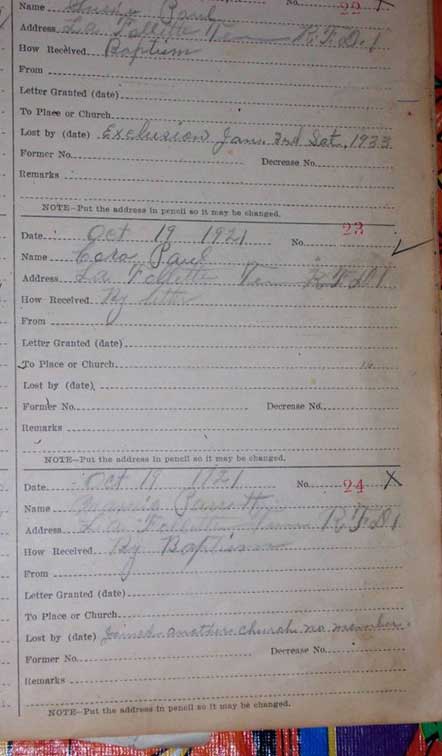 Name Paul No. 22 X
Address La Follette Tenn R.F.D. 1
How Received Baptism
From
Letter Granted (date)
To Place or Church
Lost by (date) Exclusion Jan. 2nd Sat. 1933
Former No. Decrease No.
Remarks
NOTE—Put the address in pencil so it may be changed.
Date Oct 19 1921 No. 23 ✓
Name Paul
Address La Follette Tenn R.F.D. 1
How Received By letter
From
Letter Granted (date)
To Place or Church
Lost by (date)
Former No. Decrease No.
Remarks
NOTE—Put the address in pencil so it may be changed.
Date Oct 19 1921 No. 24 X
Name
Address La Follette Tenn R.F.D. 1
How Received By Baptism
From
Letter Granted (date)
To Place or Church
Lost by (date) Joined another church no member
Former No. Decrease No.
Remarks
NOTE—Put the address in pencil so it may be changed.